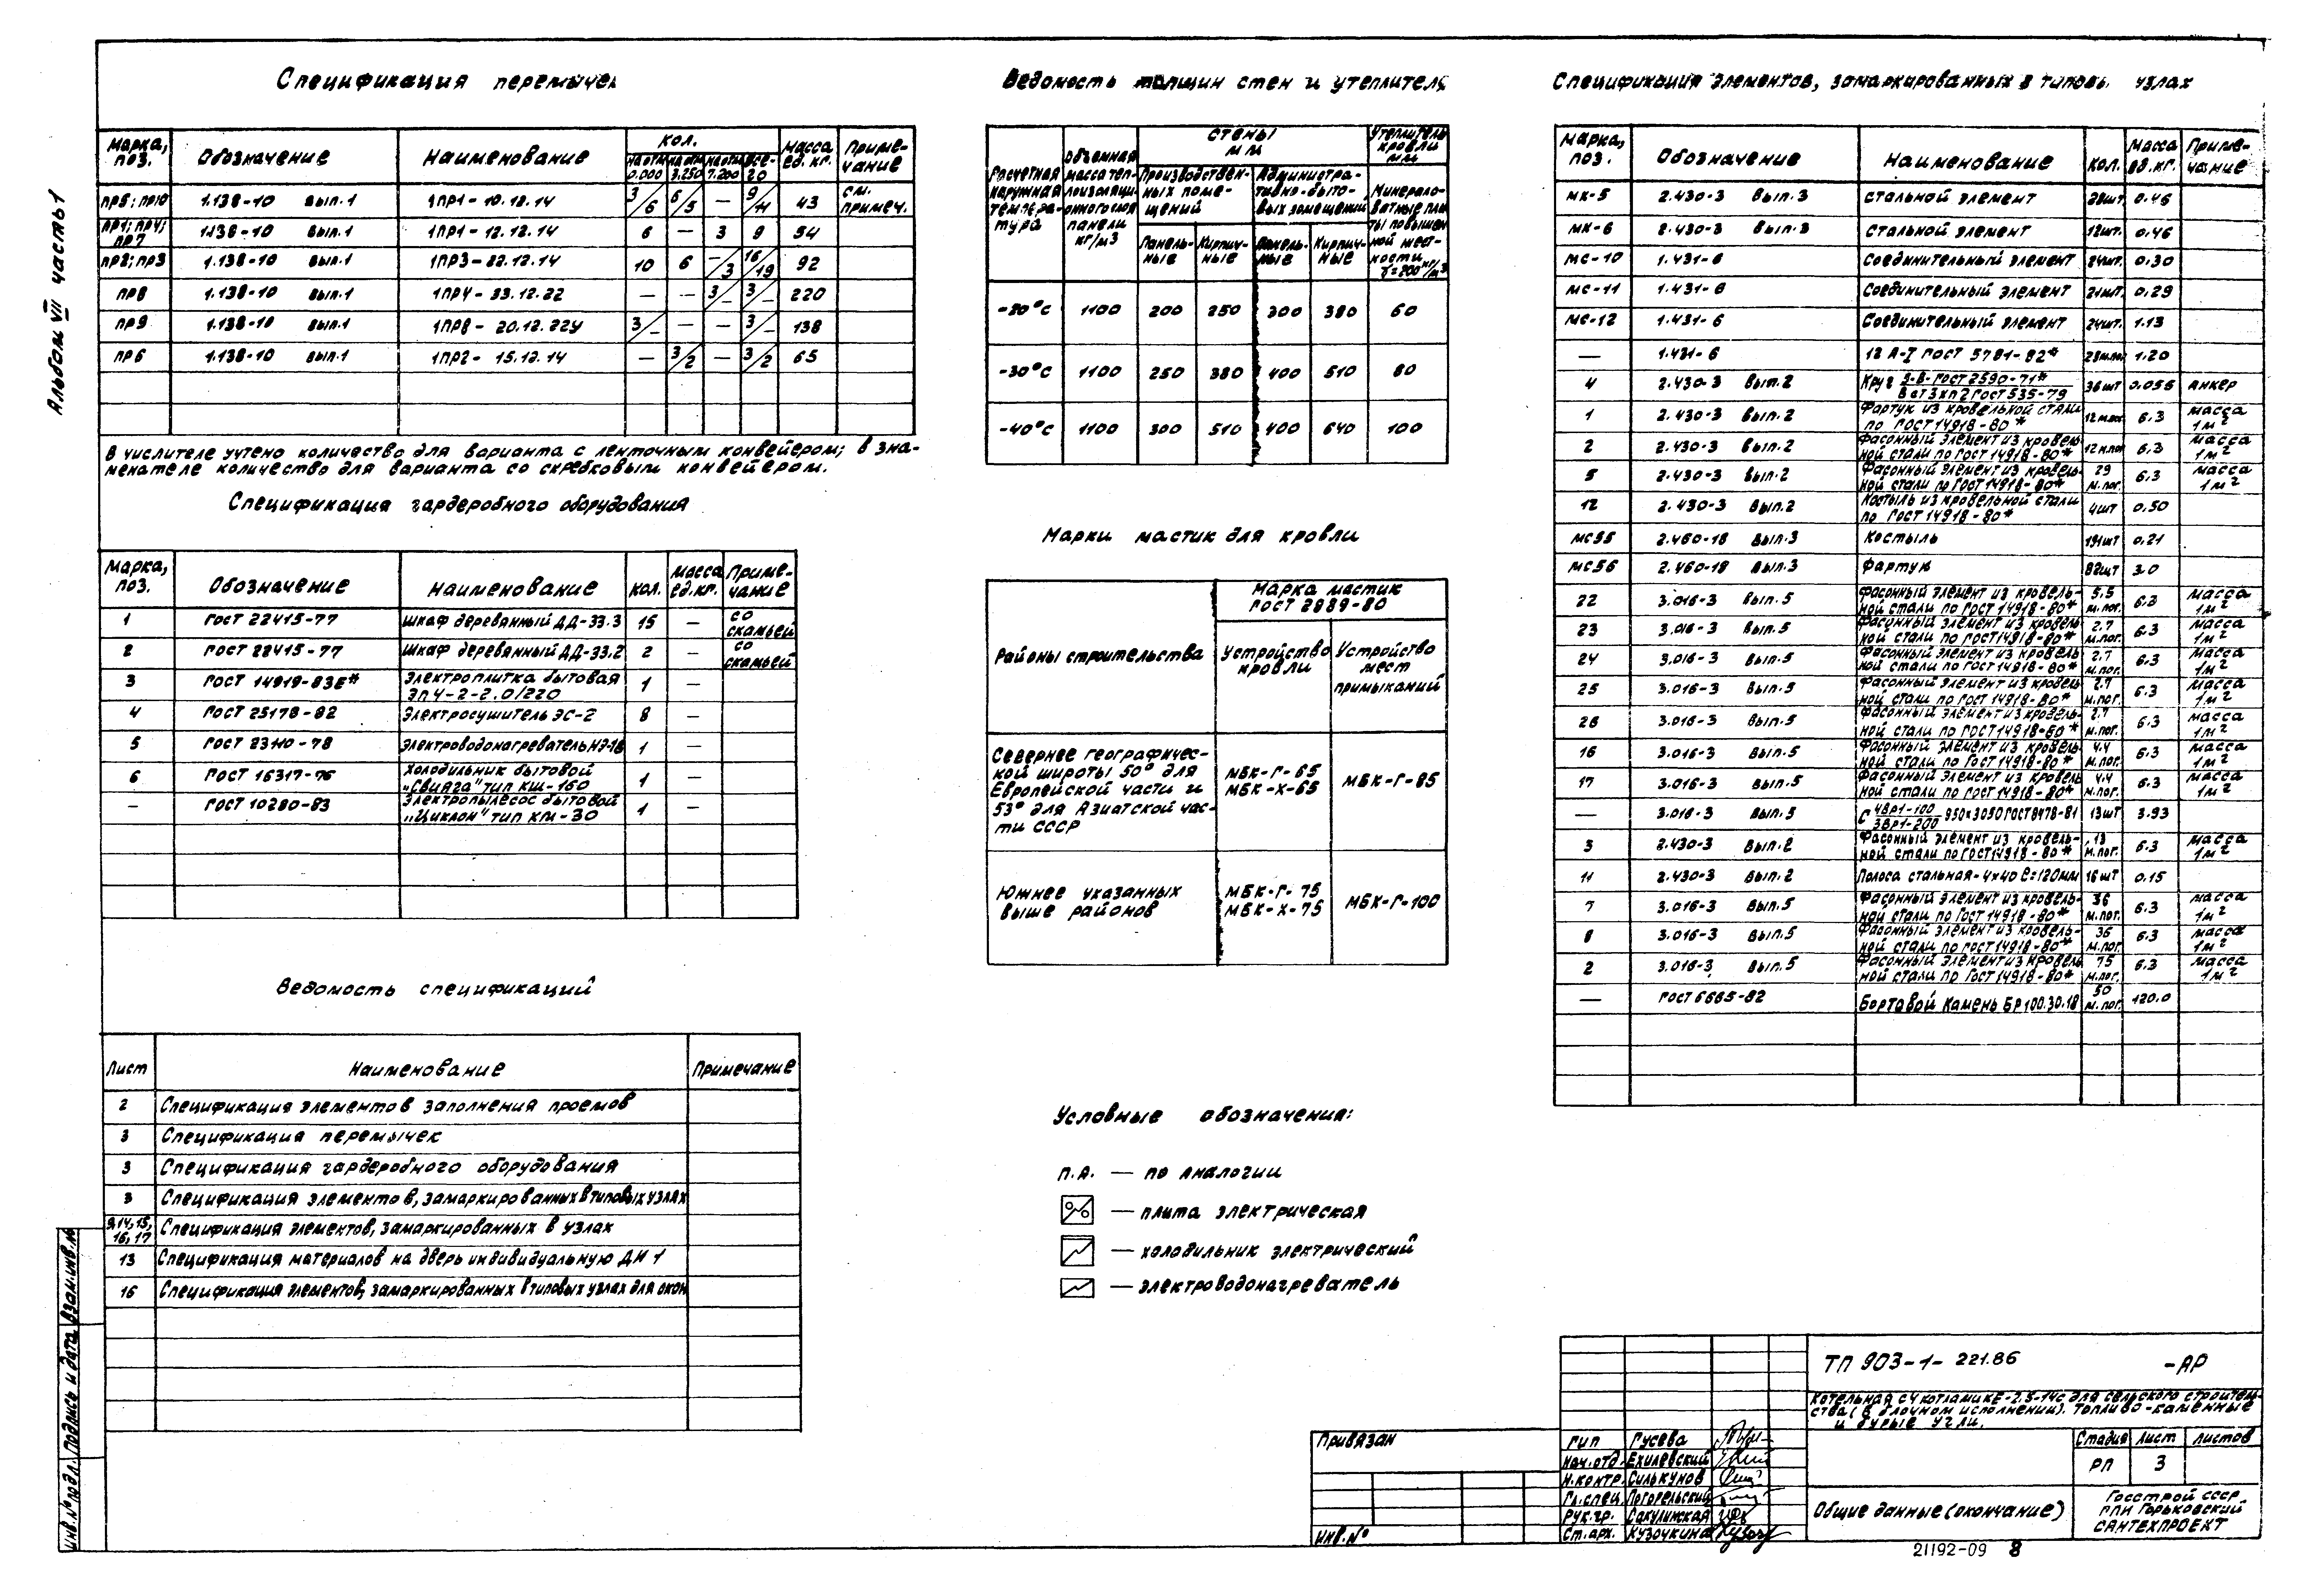 Альбом VII часть 1
Спецификация перемычек
Марка, поз. Обозначение Наименование Кол. Масса ед. кг. Примечание
на отм. 0.000 на отм. 3.250 на отм. 7.200 все-го
пр5; пр10 1.138-10 вып.1 1пр1-10.12.14 3/6 6/5 — 9/11 43 см. примеч.
пр1; пр4; пр7 1.138-10 вып.1 1пр1-12.12.14 6 — 3 9 54
пр2; пр3 1.138-10 вып.1 1пр3-22.12.14 10 6 —/3 16/19 92
пр8 1.138-10 вып.1 1пр4-33.12.22 — — 3/— 3/— 220
пр9 1.138-10 вып.1 1пр8-20.12.22у 3/— — — 3/— 138
пр6 1.138-10 вып.1 1пр2-15.12.14 — 3/2 — 3/2 65
В числителе учтено количество для варианта с ленточным конвейером; в зна-
менателе количество для варианта со скребковым конвейером.
Спецификация гардеробного оборудования
Марка, поз. Обозначение Наименование Кол. Масса ед. кг. Примечание
1 ГОСТ 22415-77 Шкаф деревянный ДД-33.3 15 — со скамьей
2 ГОСТ 22415-77 Шкаф деревянный ДД-33.2 2 — со скамьей
3 ГОСТ 14919-83Е* Электроплитка бытовая ЭПЧ-2-2.0/220 1 —
4 ГОСТ 25178-82 Электросушитель ЭС-2 8 —
5 ГОСТ 23110-78 Электроводонагреватель 1 —
6 ГОСТ 16317-76 Холодильник бытовой „Свияга" тип КШ-160 1 —
— ГОСТ 10280-83 Электропылесос бытовой „Циклон" тип КМ-30 1 —
Ведомость спецификаций
Лист Наименование Примечание
2 Спецификация элементов заполнения проемов
3 Спецификация перемычек
3 Спецификация гардеробного оборудования
3 Спецификация элементов, замаркированных в типовых узлах
9,14,15, 16,17 Спецификация элементов, замаркированных в узлах
13 Спецификация материалов на дверь индивидуальную ДН 1
16 Спецификация элементов, замаркированных в типовых узлах для окон
Ведомость толщин стен и утеплителя
Расчетная наружная температура Объемная масса теплоизоляционного слоя панели кг/м3 Стены мм Утеплитель кровли мм
Производствен-ных поме-щений Администра-тивно-быто-вых помещений Минерало-ватные пли-ты повышен-ной жест-кости γ=200 кг/м3
Панель-ные Кирпич-ные Панель-ные Кирпич-ные
-20°С 1100 200 250 300 380 60
-30°С 1100 250 380 400 510 80
-40°С 1100 300 510 400 640 100
Марки мастик для кровли
Районы строительства Марка мастик ГОСТ 2889-80
Устройство кровли Устройство мест примыканий
Севернее географичес-
кой широты 50° для
Европейской части и
53° для Азиатской час-
ти СССР
МБК-Г-65 МБК-Х-65 МБК-Г-85
Южнее указанных
выше районов
МБК-Г-75 МБК-Х-75 МБК-Г-100
Условные обозначения:
п.А. — по аналогии
— плита электрическая
— холодильник электрический
— электроводонагреватель
Спецификация элементов, замаркированных в типовы. узлах
Марка, поз. Обозначение Наименование Кол. Масса ед. кг. Примечание
МК-5 2.430-3 Вып.3 Стальной элемент 28шт. 0.46
МК-6 2.430-3 Вып.3 Стальной элемент 12шт. 0.46
МС-10 1.431-6 Соединительный элемент 24шт. 0.30
МС-11 1.431-6 Соединительный элемент 21шт. 0.29
МС-12 1.431-6 Соединительный элемент 24шт. 1.13
— 1.431-6 12 А-I ГОСТ 5781-82* 28м.пог 1.20
4 2.430-3 Вып.2 Круг 9-В-ГОСТ 2590-71* / Вст3кп2 ГОСТ 535-79 36шт 0.056 анкер
1 2.430-3 Вып.2 Фартук из кровельной стали по ГОСТ 14918-80* 12м.пог 6.3 масса 1м2
2 2.430-3 Вып.2 Фасонный элемент из кровель-ной стали по ГОСТ 14918-80* 12м.пог 6.3 масса 1м2
5 2.430-3 Вып.2 Фасонный элемент из кровель-ной стали по ГОСТ 14918-80* 29 м.пог. 6.3 масса 1м2
12 2.430-3 Вып.2 Костыль из кровельной стали по ГОСТ 14918-80* 4шт 0.50
МС55 2.460-18 Вып.3 Костыль 191шт 0.21
МС56 2.460-18 Вып.3 Фартук 82шт 3.0
22 3.016-3 Вып.5 Фасонный элемент из кровель-ной стали по ГОСТ 14918-80* 5.5 м.пог. 6.3 масса 1м2
23 3.016-3 Вып.5 Фасонный элемент из кровель-ной стали по ГОСТ 14918-80* 2.7 м.пог. 6.3 масса 1м2
24 3.016-3 Вып.5 Фасонный элемент из кровель-ной стали по ГОСТ 14918-80* 2.7 м.пог. 6.3 масса 1м2
25 3.016-3 Вып.5 Фасонный элемент из кровель-ной стали по ГОСТ 14918-80* 2.7 м.пог. 6.3 масса 1м2
26 3.016-3 Вып.5 Фасонный элемент из кровель-ной стали по ГОСТ 14918-80* 2.7 м.пог. 6.3 масса 1м2
16 3.016-3 Вып.5 Фасонный элемент из кровель-ной стали по ГОСТ 14918-80* 4.4 м.пог. 6.3 масса 1м2
17 3.016-3 Вып.5 Фасонный элемент из кровель-ной стали по ГОСТ 14918-80* 4.4 м.пог. 6.3 масса 1м2
— 3.016-3 Вып.5 С 4Вр1-100/3Вр1-200 950х3050 ГОСТ 8478-81 13шт 3.93
3 2.430-3 Вып.2 Фасонный элемент из кровель-ной стали по ГОСТ 14918-80* 13 м.пог. 6.3 масса 1м2
11 2.430-3 Вып.2 Полоса стальная-4х40 ℓ=120мм 16шт 0.15
7 3.016-3 Вып.5 Фасонный элемент из кровель-ной стали по ГОСТ 14918-80* 36 м.пог. 6.3 масса 1м2
8 3.016-3 Вып.5 Фасонный элемент из кровель-ной стали по ГОСТ 14918-80* 36 м.пог. 6.3 масса 1м2
2 3.016-3 Вып.5 Фасонный элемент из кровель-ной стали по ГОСТ 14918-80* 75 м.пог. 6.3 масса 1м2
— ГОСТ 6665-82 Бортовой камень БР100.30.18 50 м.пог. 120.0
ТП 903-1-221.86 -АР
Котельная с 4 котлами КЕ-2.5-14с для сельского строитель-
ства (в блочном исполнении). Топливо-каменные
и бурые угли.
Стадия Лист Листов
РП 3
Общие данные (окончание)
Госстрой СССР
ГПИ Горьковский
САНТЕХПРОЕКТ
Привязан
Инв. №
ГИП Гусева
Нач.отд. Ехилевский
Н.контр. Силькунов
Гл.спец. Погорельский
Рук.гр. Сакулинская
Ст.арх. Кузочкина
Инв. № подл. Подпись и дата Взам. инв. №
21192-09 8